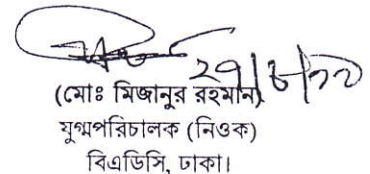 (মোঃ মিজানুর রহমান)
যুগ্মপরিচালক (নিওক)
বিএডিসি, ঢাকা।